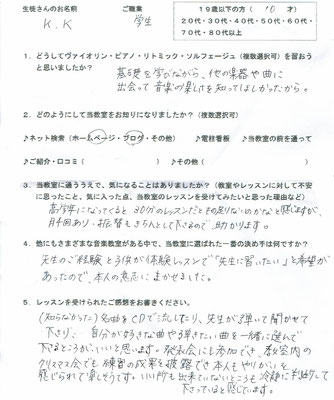 生徒さんのお名前 ご職業 19歳以下の方（ 10 才）
K.K 学生 20代・30代・40代・50代・60代・
70代・80代以上
1．どうしてヴァイオリン・ピアノ・リトミック・ソルフェージュ（複数選択可）を習おう
と思いましたか？
基礎を学びながら、他の楽器や曲に
出会って音楽の楽しさを知ってほしかったから。
2．どのようにして当教室をお知りになりましたか？（複数選択可）
♪ネット検索（ホームページ・ブログ・その他） ♪電柱看板 ♪当教室の前を通って
♪ご紹介・口コミ（ ） ♪その他（ ）
3．当教室に通ううえで、気になることはありましたか？（教室やレッスンに対して不安
に思ったこと、気に入った点、当教室のレッスンを受けてみたいと思った理由など）
高学年になってくると30分のレッスンだとその足りないのかなと感じますが、
月4回あり、振替もきちんとして下さるので、助かります。
4．他にもさまざまな音楽教室がある中で、当教室に選ばれた一番の決め手は何ですか？
先生のご経験と子供が体験レッスンで「先生に習いたい」と希望が
あったので、本人の意志にまかせました。
5．レッスンを受けられたご感想をお書きください。
（知らなかった）名曲をCDで流したり、先生が弾いて聞かせて
下さり、自分が好きな曲や弾きたい曲を一緒に選んで
下さるところがいいと思います。発表会にも参加でき、教室内の
クリスマス会でも練習の成果を披露でき本人もやりがいを
感じられて楽しそうです。いい所も出来ていないところも冷静に判断して
下さっていると感じています。